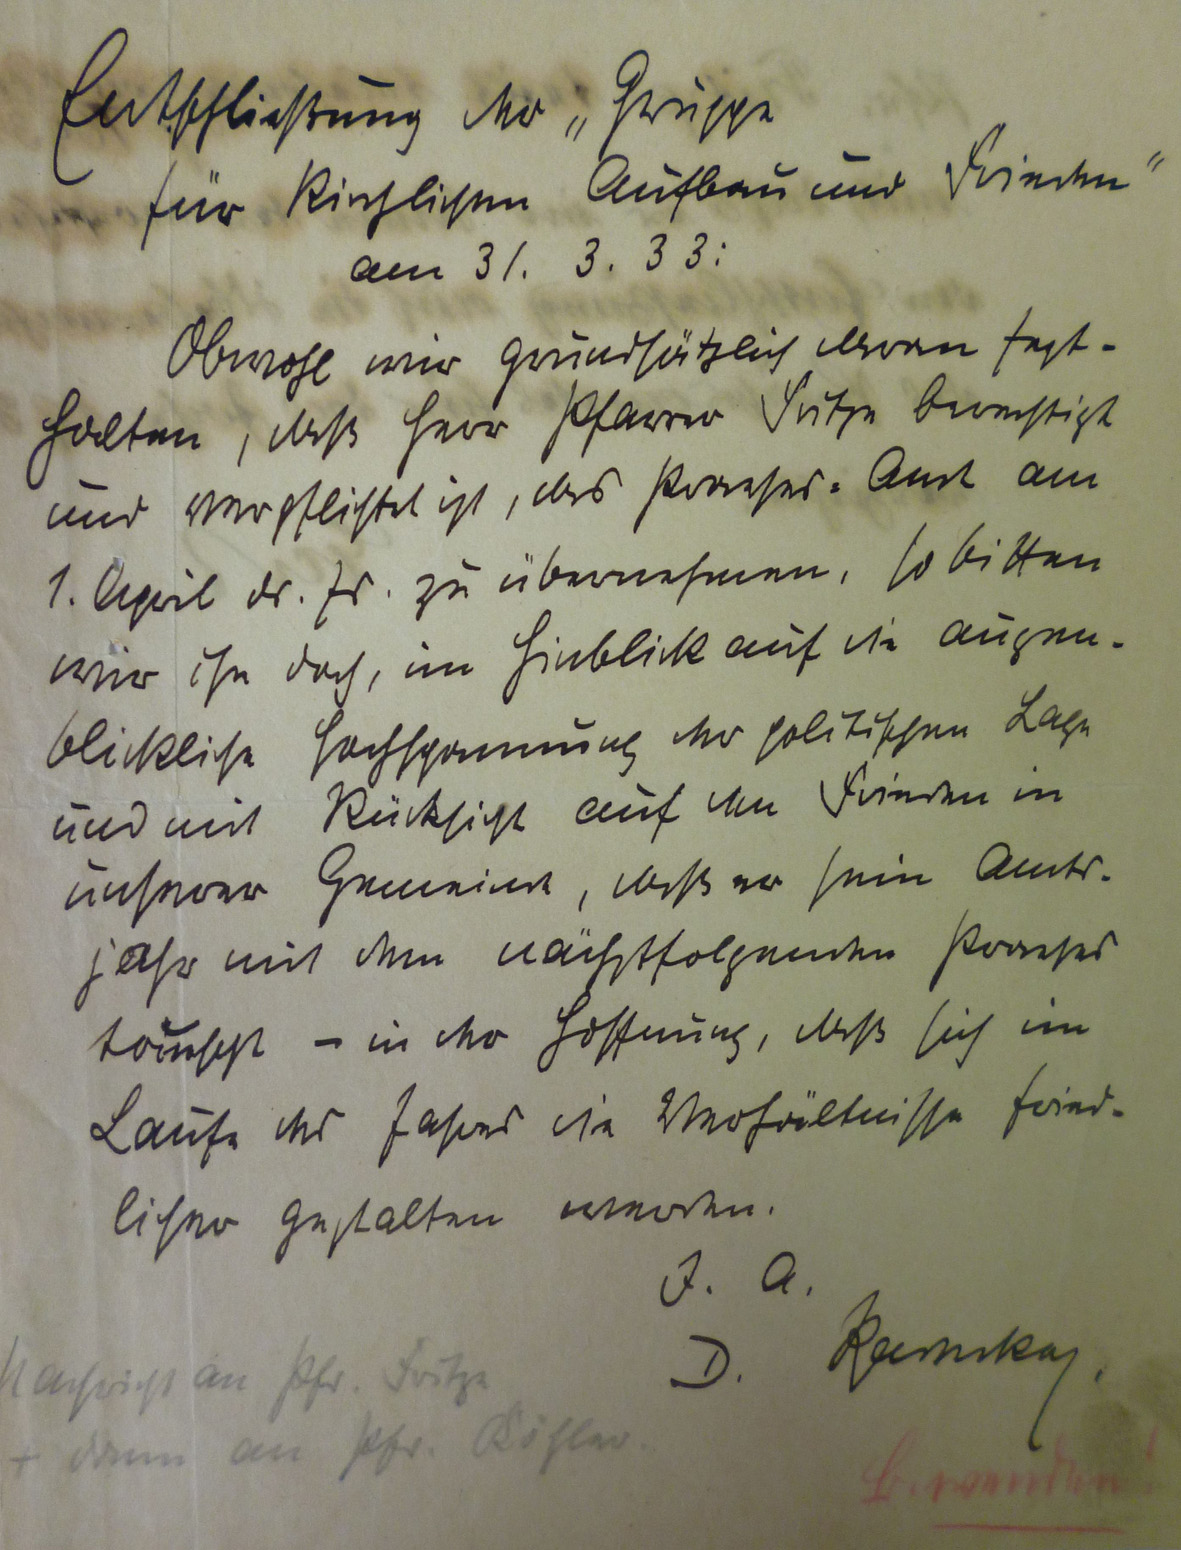 Entschließung der „Gruppe
für kirchlichen Aufbau und Frieden"
am 31. 3. 33:
Obwohl wir grundsätzlich daran fest-
halten, daß Herr Pfarrer Fritze berechtigt
und verpflichtet ist, das Proreses-Amt am
1. April ds. Js. zu übernehmen, so bitten
wir ihn doch, im Hinblick auf die augen-
blickliche Hochspannung der politischen Lage
und mit Rücksicht auf den Frieden in
unserer Gemeinde, daß er sein Amts-
jahr mit dem nächstfolgenden Proreses
tauscht – in der Hoffnung, daß sich im
Laufe des Jahres die Verhältnisse fried-
licher gestalten werden.
J. A.
D.
Nachricht an Pfr. Fritze
+ dann an Pfr. Köhler.
b. wenden!